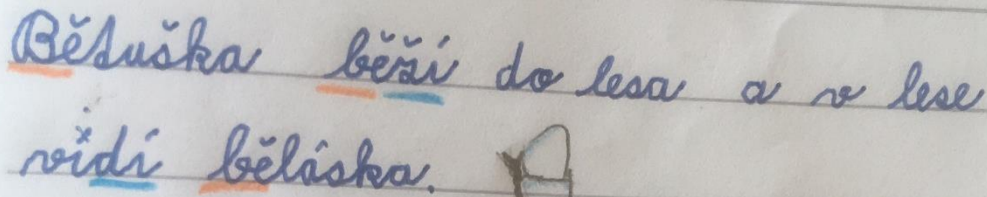 Běduška běží do lesa a v lese
vidí běláska.